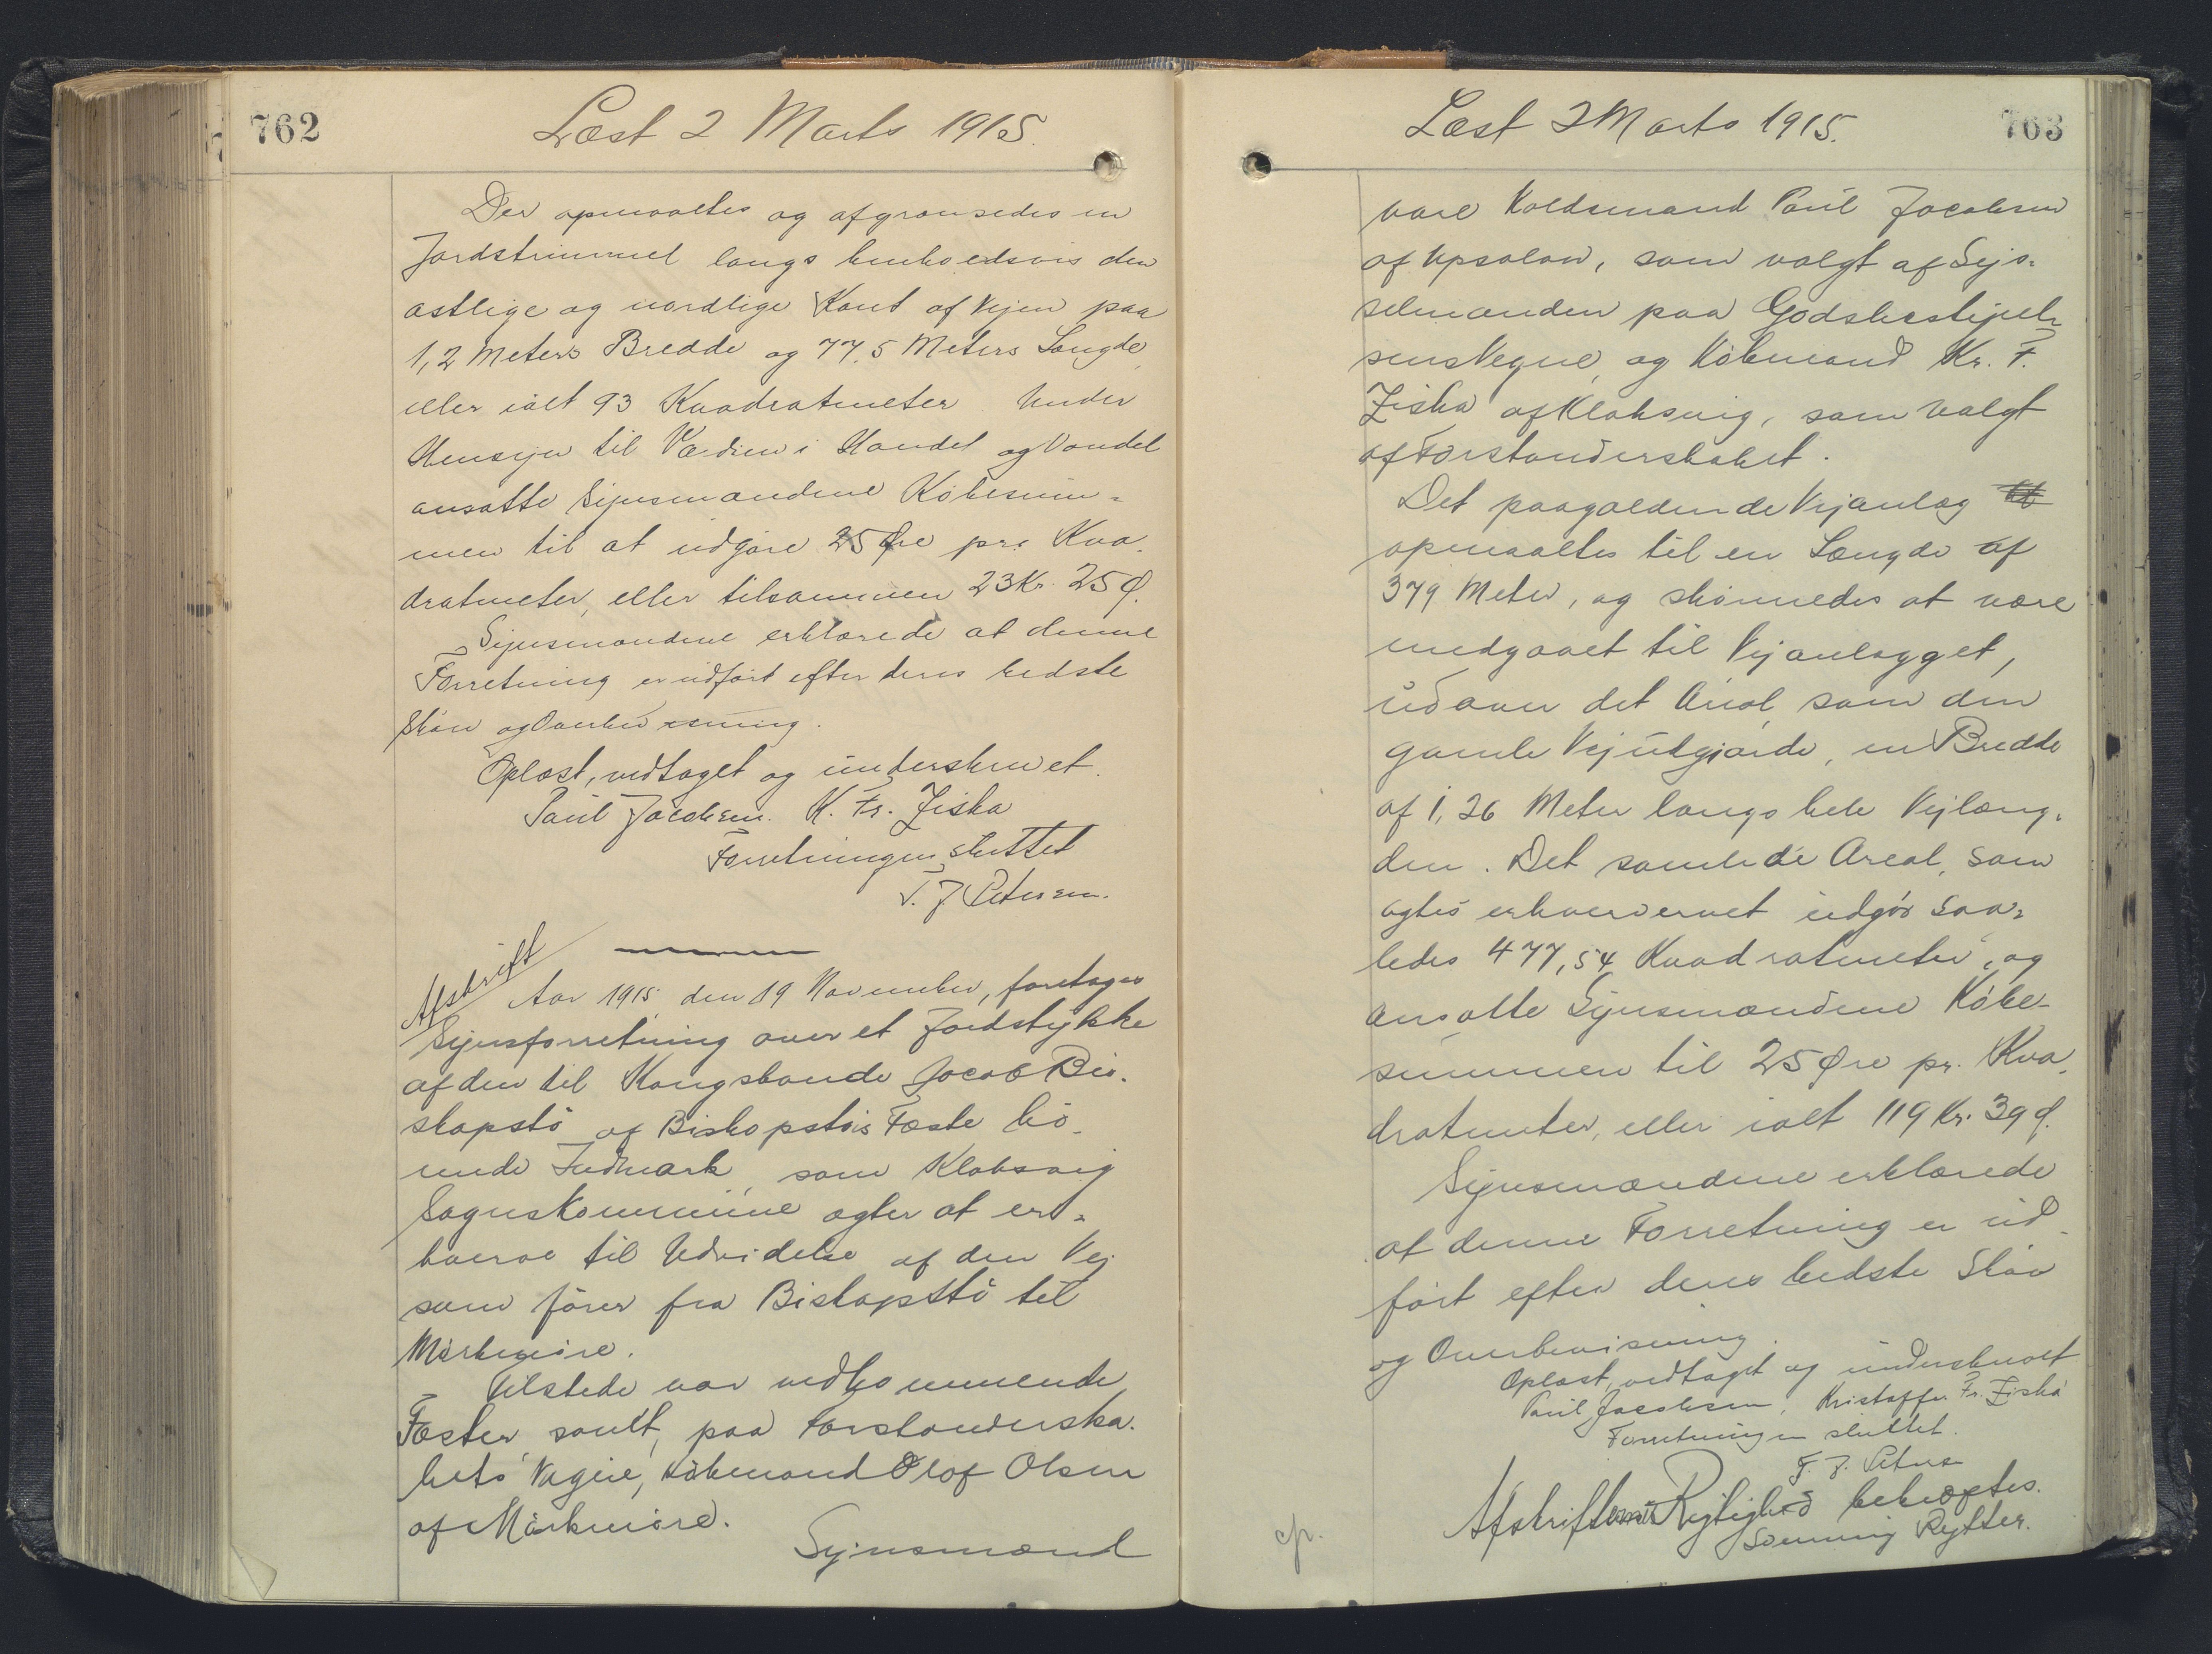 762
Læst 2 Marts 1915.
Der opmaaltes og afgrænsedes en
Jordstrimmel langs henholdsvis den
østlige og nordlige Kant af Vejen paa
1,2 Meters Bredde og 77,5 Meters Længde,
eller ialt 93 Kvadratmeter. Under
Hensyn til Værdien i Handel og Vandel
ansatte Synsmændene Købesum=
men til at udgøre 25 Øre pr. Kva-
dratmeter, eller tilsammen 23 Kr. 25 Ø.
Synsmændene erklærede at denne
Forretning er udført efter deres bedste
Skøn og Overbevisning.
Oplæst, vedtaget og underskrevet.
Paul Jacobsen. K. Fr. Ziska
Forretningen sluttet
T. J. Petersen.
Afskrift
Aar 1915 den 19 November, foretages
Synsforretning over et Jordstykke
af den til Kongsbonde Jacob Bis-
kopstø af Biskopstøs Fæste hø-
rende Indmark, som Klaksvig
Sognskommune agter at er=
hverve til Udvidelse af den Vej
som fører fra Biskopstø til
Mærkegiøre.
Tilstede var vedkommende
Fæster, samt, paa Forstanderska-
bets Vegne, Købmand Olaf Olsen
af Mærkeniøre.
Synsmænd
Læst 2 Marts 1915.
763
vare Voldsmand Paul Jacobsen
af Upsalon, som valgt af Sys=
selmanden paa Godsbestyrel=
sens Vegne, og Købmand Kr. F.
Ziska af Klaksvig, som valgt
af Forstanderskabet.
Det paagældende Vejanlæg
opmaaltes til en Længde af
379 Meter, og skønnedes at være
medgaaet til Vejanlægget,
udover det Areal, som den
gamle Vej udgjorde, en Bredde
af 1,26 Meter langs hele Vejlæng-
den. Det samlede Areal, som
agtes erhvervet udgør saa=
ledes 477,54 Kvadratmeter, og
ansatte Synsmændene Købe-
summen til 25 Øre pr. Kva-
dratmeter, eller ialt 119 Kr. 39 Ø.
Synsmændene erklærede
at denne Forretning er ud-
ført efter deres bedste Skøn
og Overbevisning.
Oplæst, vedtaget og underskrevet
Paul Jacobsen, Kristoffer Fr. Ziska
Forretningen sluttet.
T. J. Petersen
Afskriftens Rigtighed bekræftes.
Sæming Rytter.
cfr.